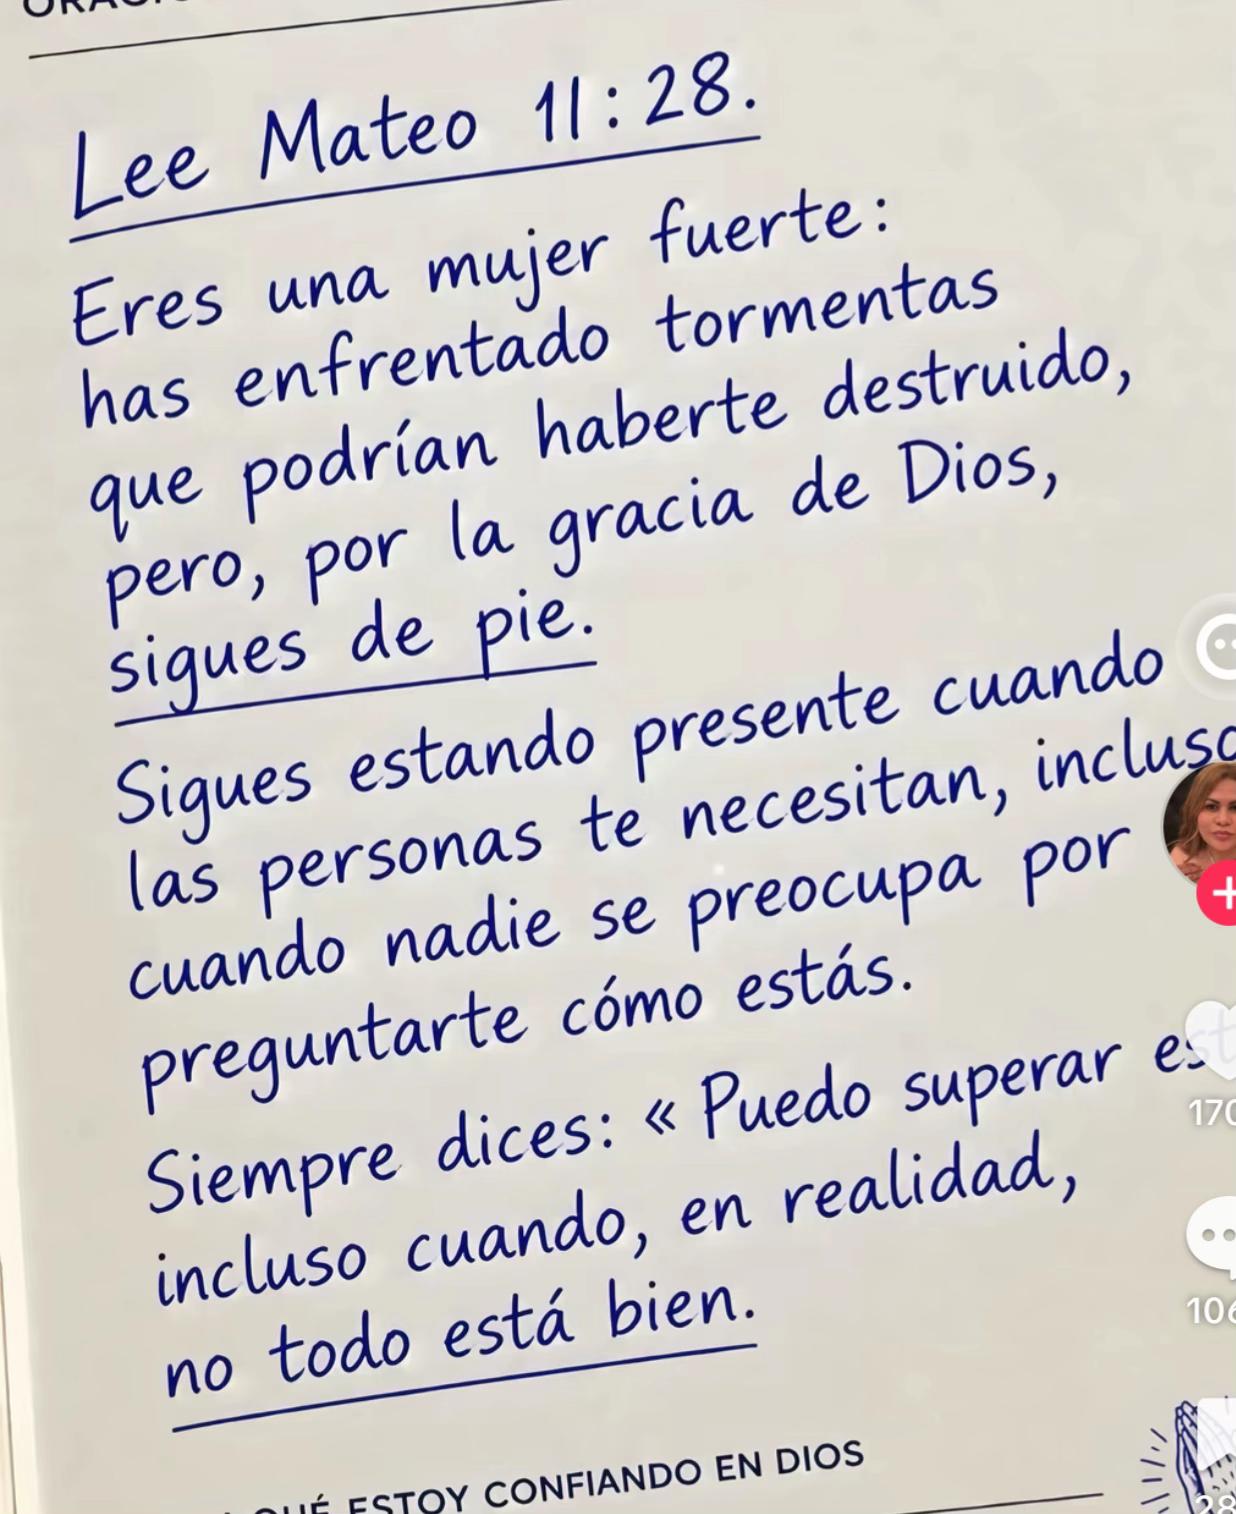 Lee Mateo 11:28.
Eres una mujer fuerte:
has enfrentado tormentas
que podrían haberte destruido,
pero, por la gracia de Dios,
sigues de pie.
Sigues estando presente cuando
las personas te necesitan, incluso
cuando nadie se preocupa por
preguntarte cómo estás.
Siempre dices: « Puedo superar
incluso cuando, en realidad,
no todo está bien.
ESTOY CONFIANDO EN DIOS